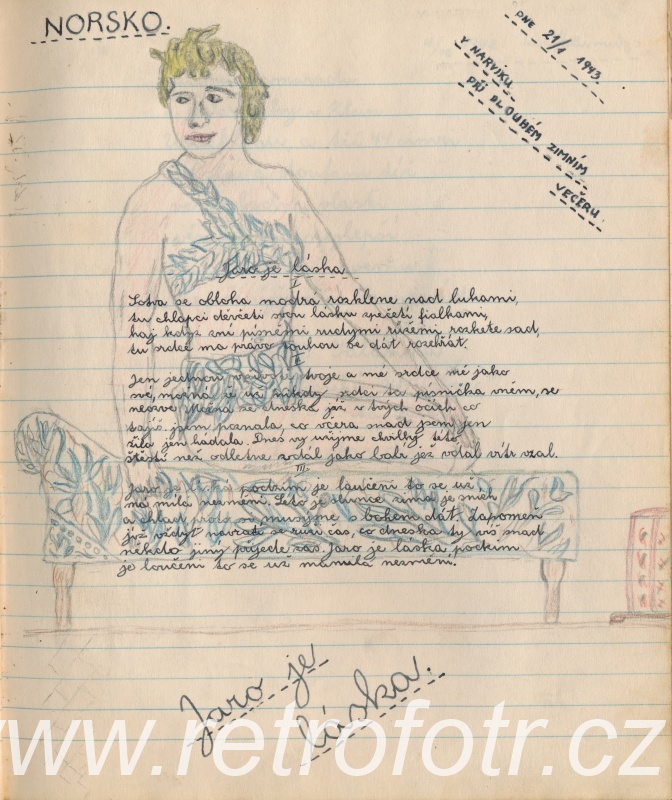 NORSKO.
DNE 21/1 1943.
V NARVIKU
PŘI DLOUHÉM ZIMNÍM
VEČERU.
Jaro je láska
I.
Sotva se obloha modrá rozklene nad lukami,
tu chlapci děvčeti svou lásku zpečetí fialkami,
háj když zní písněmi rudými růžemi rozkete sad,
tu srdce má právo touhou be dát rozehřát.
II.
Jen jednou tvoje a mé srdce mé jako
své, možná že už nikdy srdci ta písnička vném, se
neozve Možná že dneska již v tvých očích co
tajíš jsem poznala, co včera snad jsem jen
žila jen hádala. Dnes vy užijme chvilky této
štěstí než odletne vzdál jako balx jež vdál vítr vzal.
III.
Jaro je láska podzim je loučení to se už
má milá nezmění. Léto je slunce zima je sníh
a chlad proto si musíme s bohem dát. Zapomen
již vždyť navrátí se růží čas, co dneska ty víš snad
někdo jiný přijede zas. Jaro je láska podzim
je loučení to se už mámilá nezmění.
Jaro je
láska.
www.retrofotr.cz